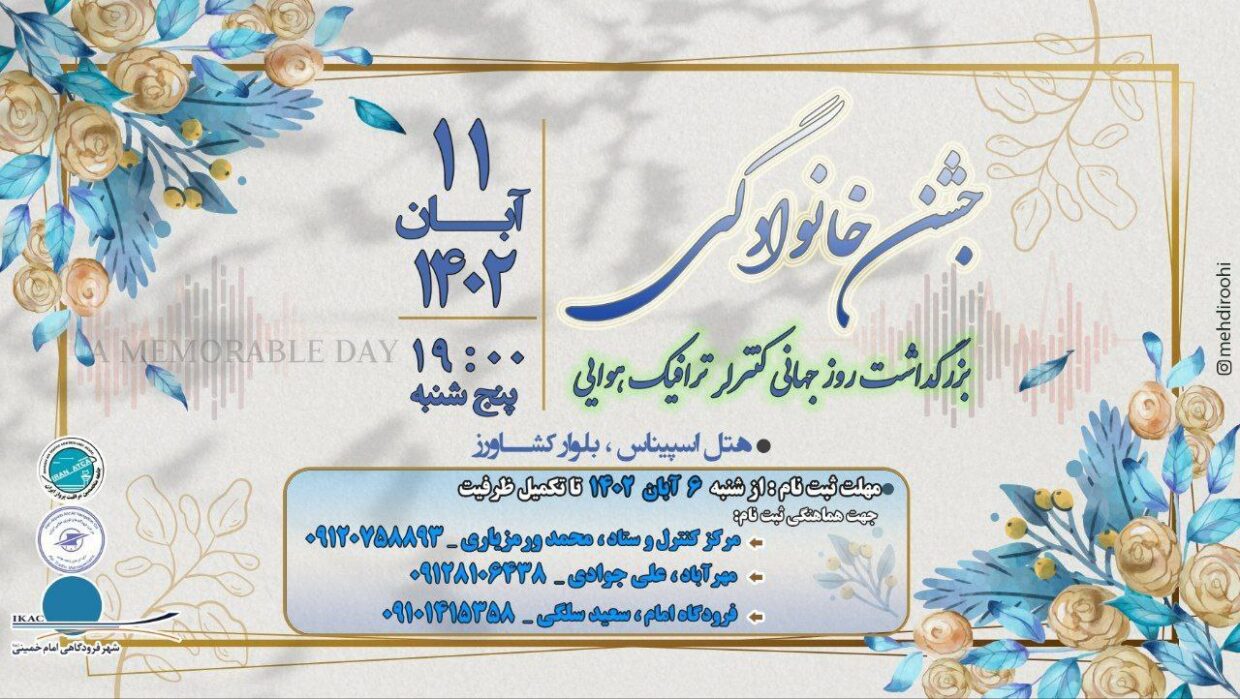 جشن خانوادگی
بزرگداشت روز جهانی کنترلر ترافیک هوایی
۱۱
آبان
۱۴۰۲
۱۹:۰۰
پنج شنبه
A MEMORABLE DAY
هتل اسپیناس ، بلوار کشاورز
مهلت ثبت نام : از شنبه ۶ آبان ۱۴۰۲ تا تکمیل ظرفیت
جهت هماهنگی ثبت نام:
مرکز کنترل و ستاد ، محمد ورمزیاری _ ۰۹۱۲۰۷۵۸۸۹۳
مهرآباد ، علی جوادی _ ۰۹۱۲۸۱۰۶۴۳۸
فرودگاه امام ، سعید سلگی _ ۰۹۱۰۱۴۱۵۳۵۸
mehdiroohi
IRAN ATCA
IKAC
شهر فرودگاهی امام خمینی